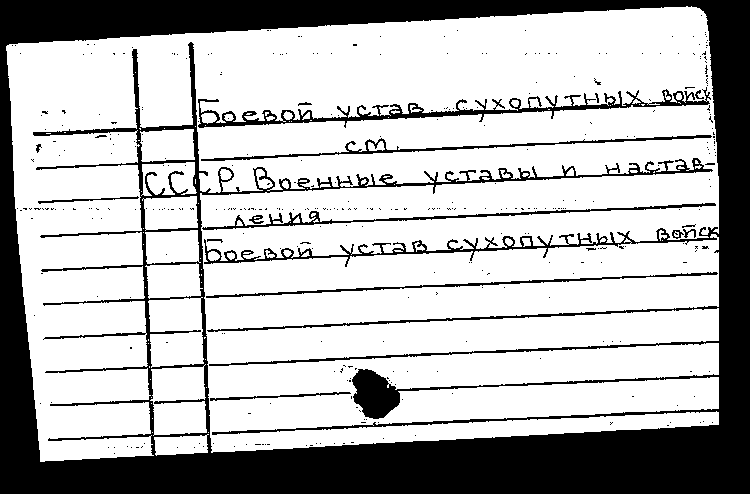 Боевой устав сухопутных войск
см.
СССР. Военные уставы и настав-
ления.
Боевой устав сухопутных войск